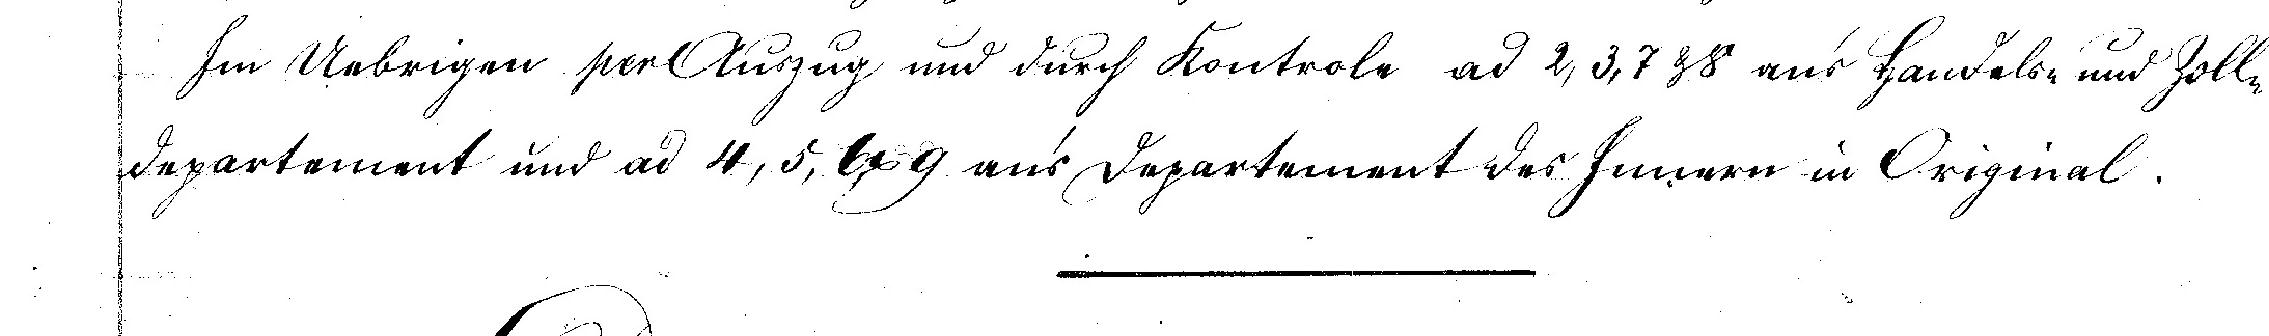 Im Uebrigen per Auszug und durch Kontrole ad 2, 3, 7 & 8 an's Handels- und Zoll-
departement und ad 4, 5, 6 & 9 an's Departement des Innern in Original.